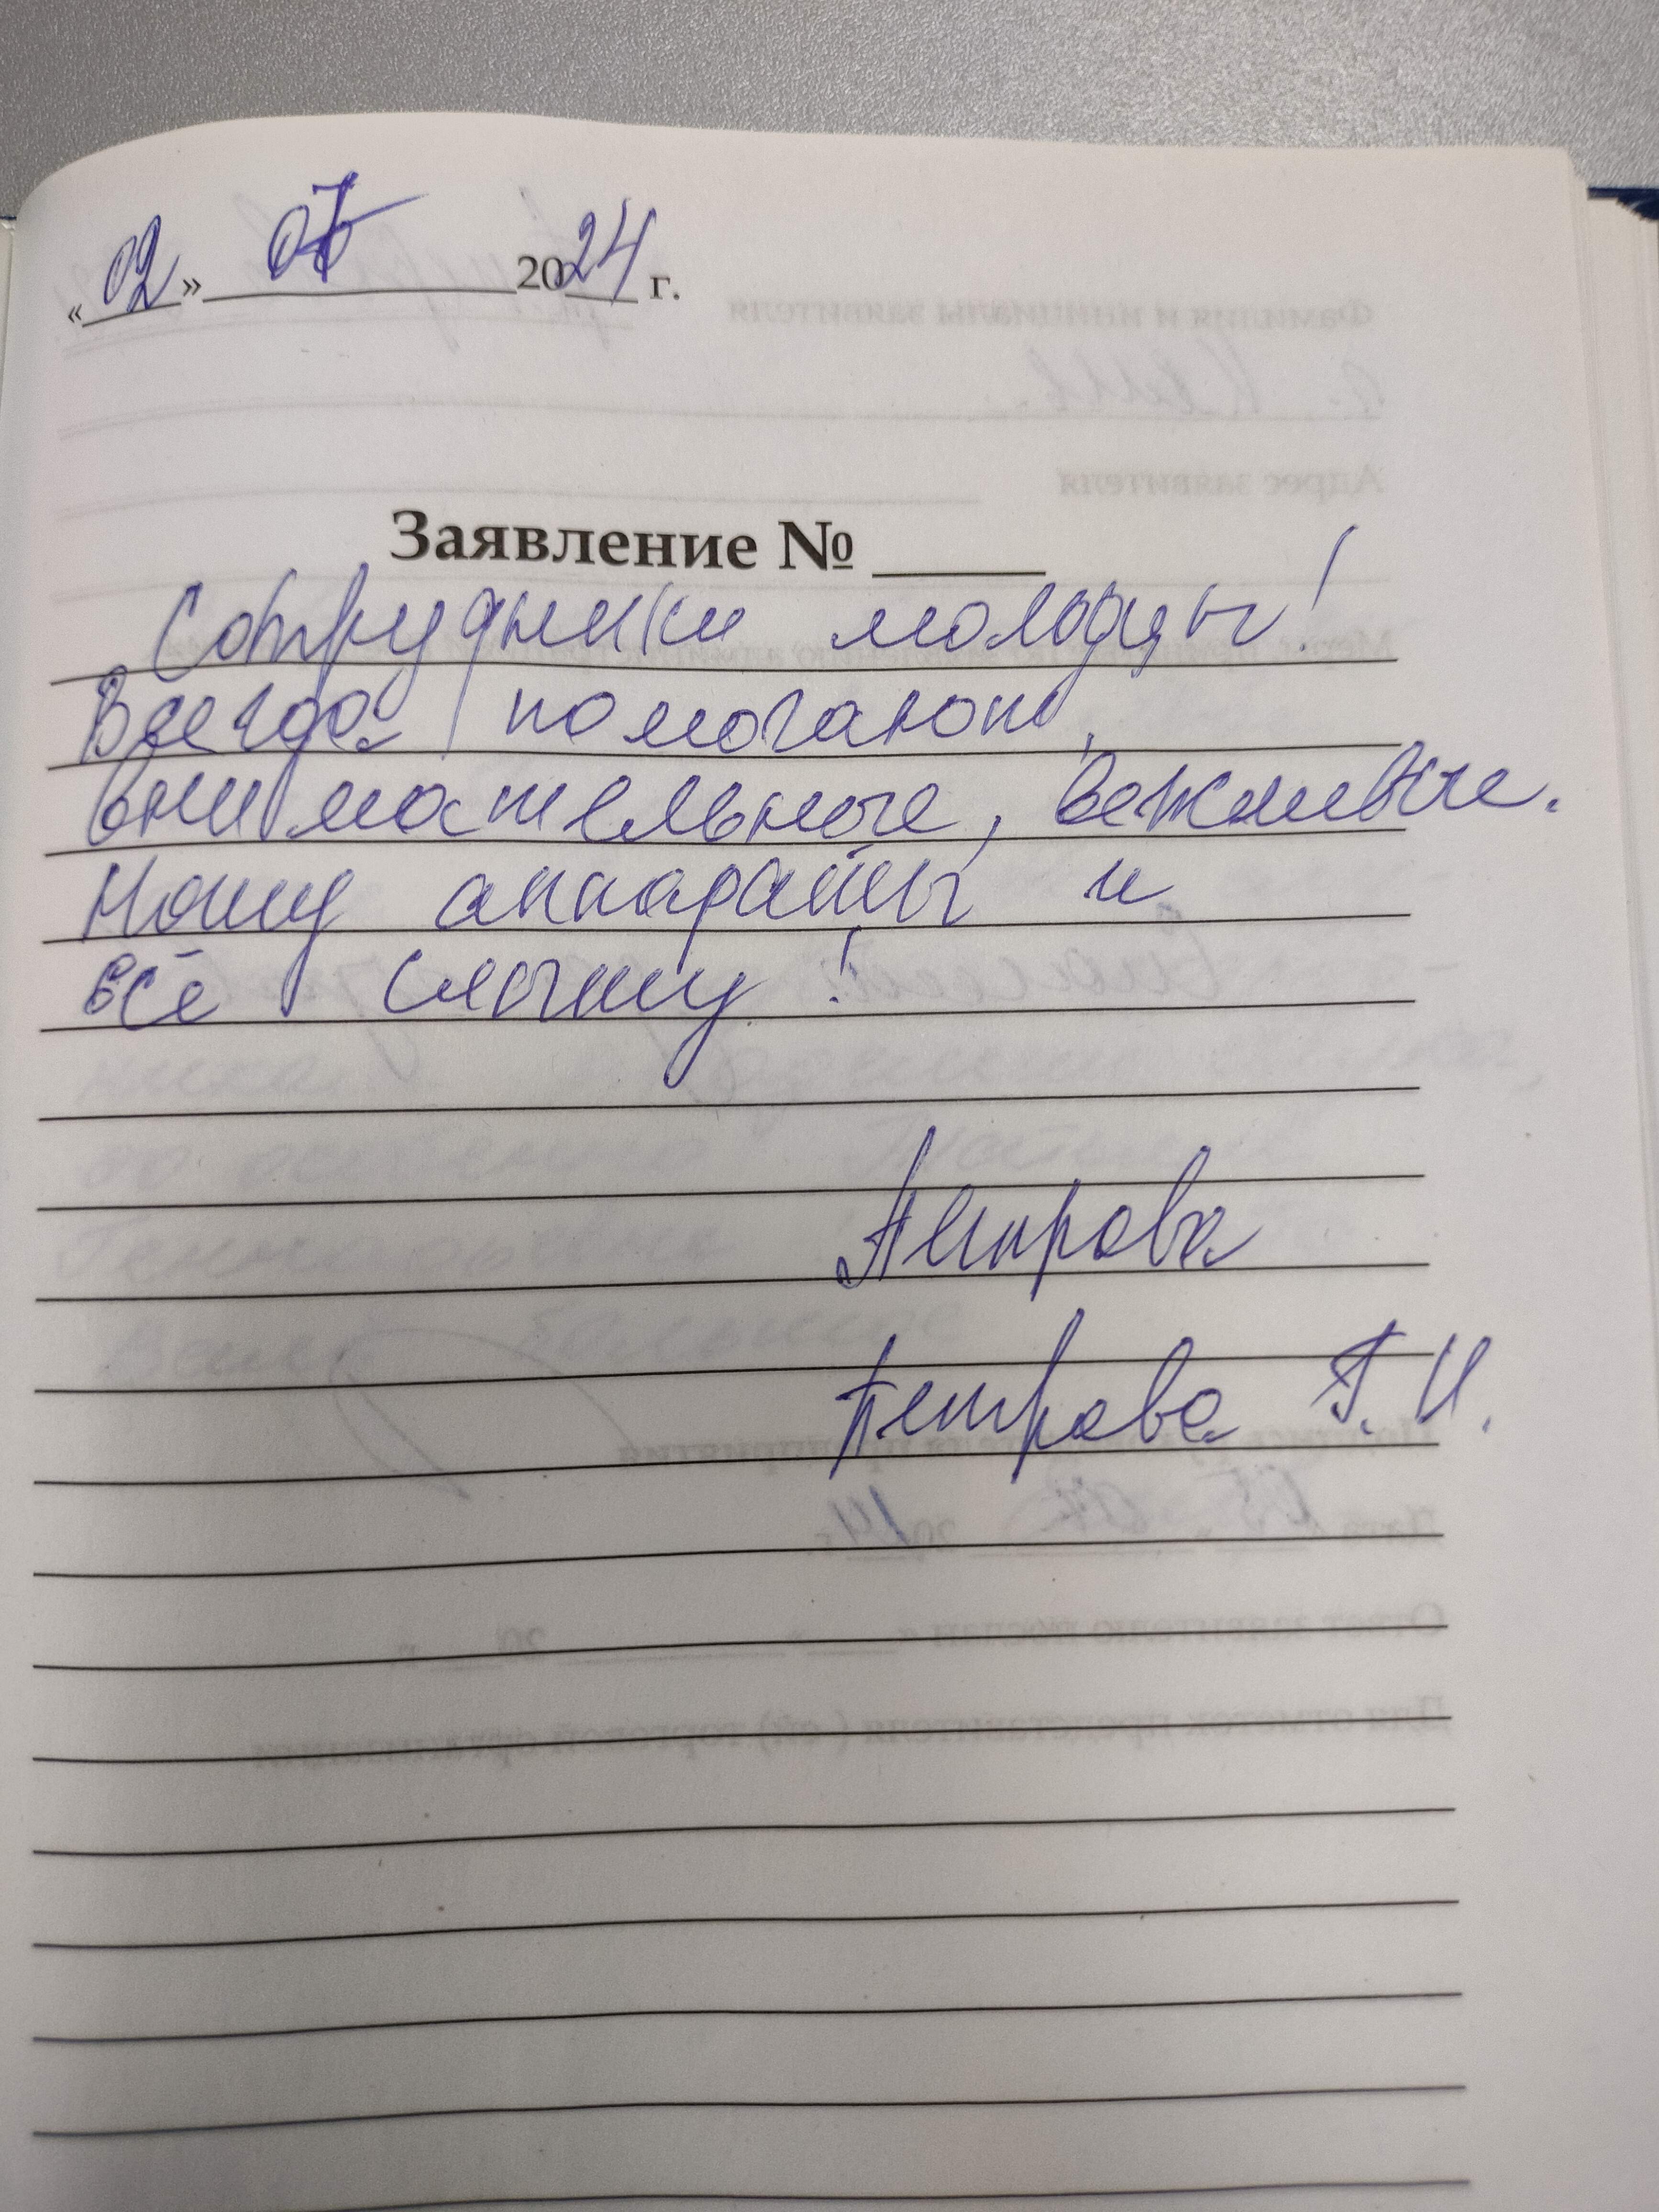 «02» 07 2024 г.
Заявление № ____
Сотрудники молодцы!
Всегда помогают,
внимательные, вежливые.
Ношу аппараты и
всё слышу!
Петрова
Петрова Г. И.